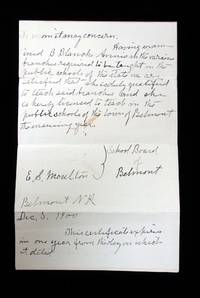 To whom it may concern:
Having exam-
ined Blanch Annis in the various
branches required to be taught in the
public schools of the State we are
satisfied that she is duly qualified
to teach said branches and she
is hereby licensed to teach in the
public schools of the town of Belmont
the ensuing year.
School Board
of
E. S. Moulton
Belmont
Belmont N.H.
Dec. 3. 1900
This certificate expires
in one year from the day on which
it dated